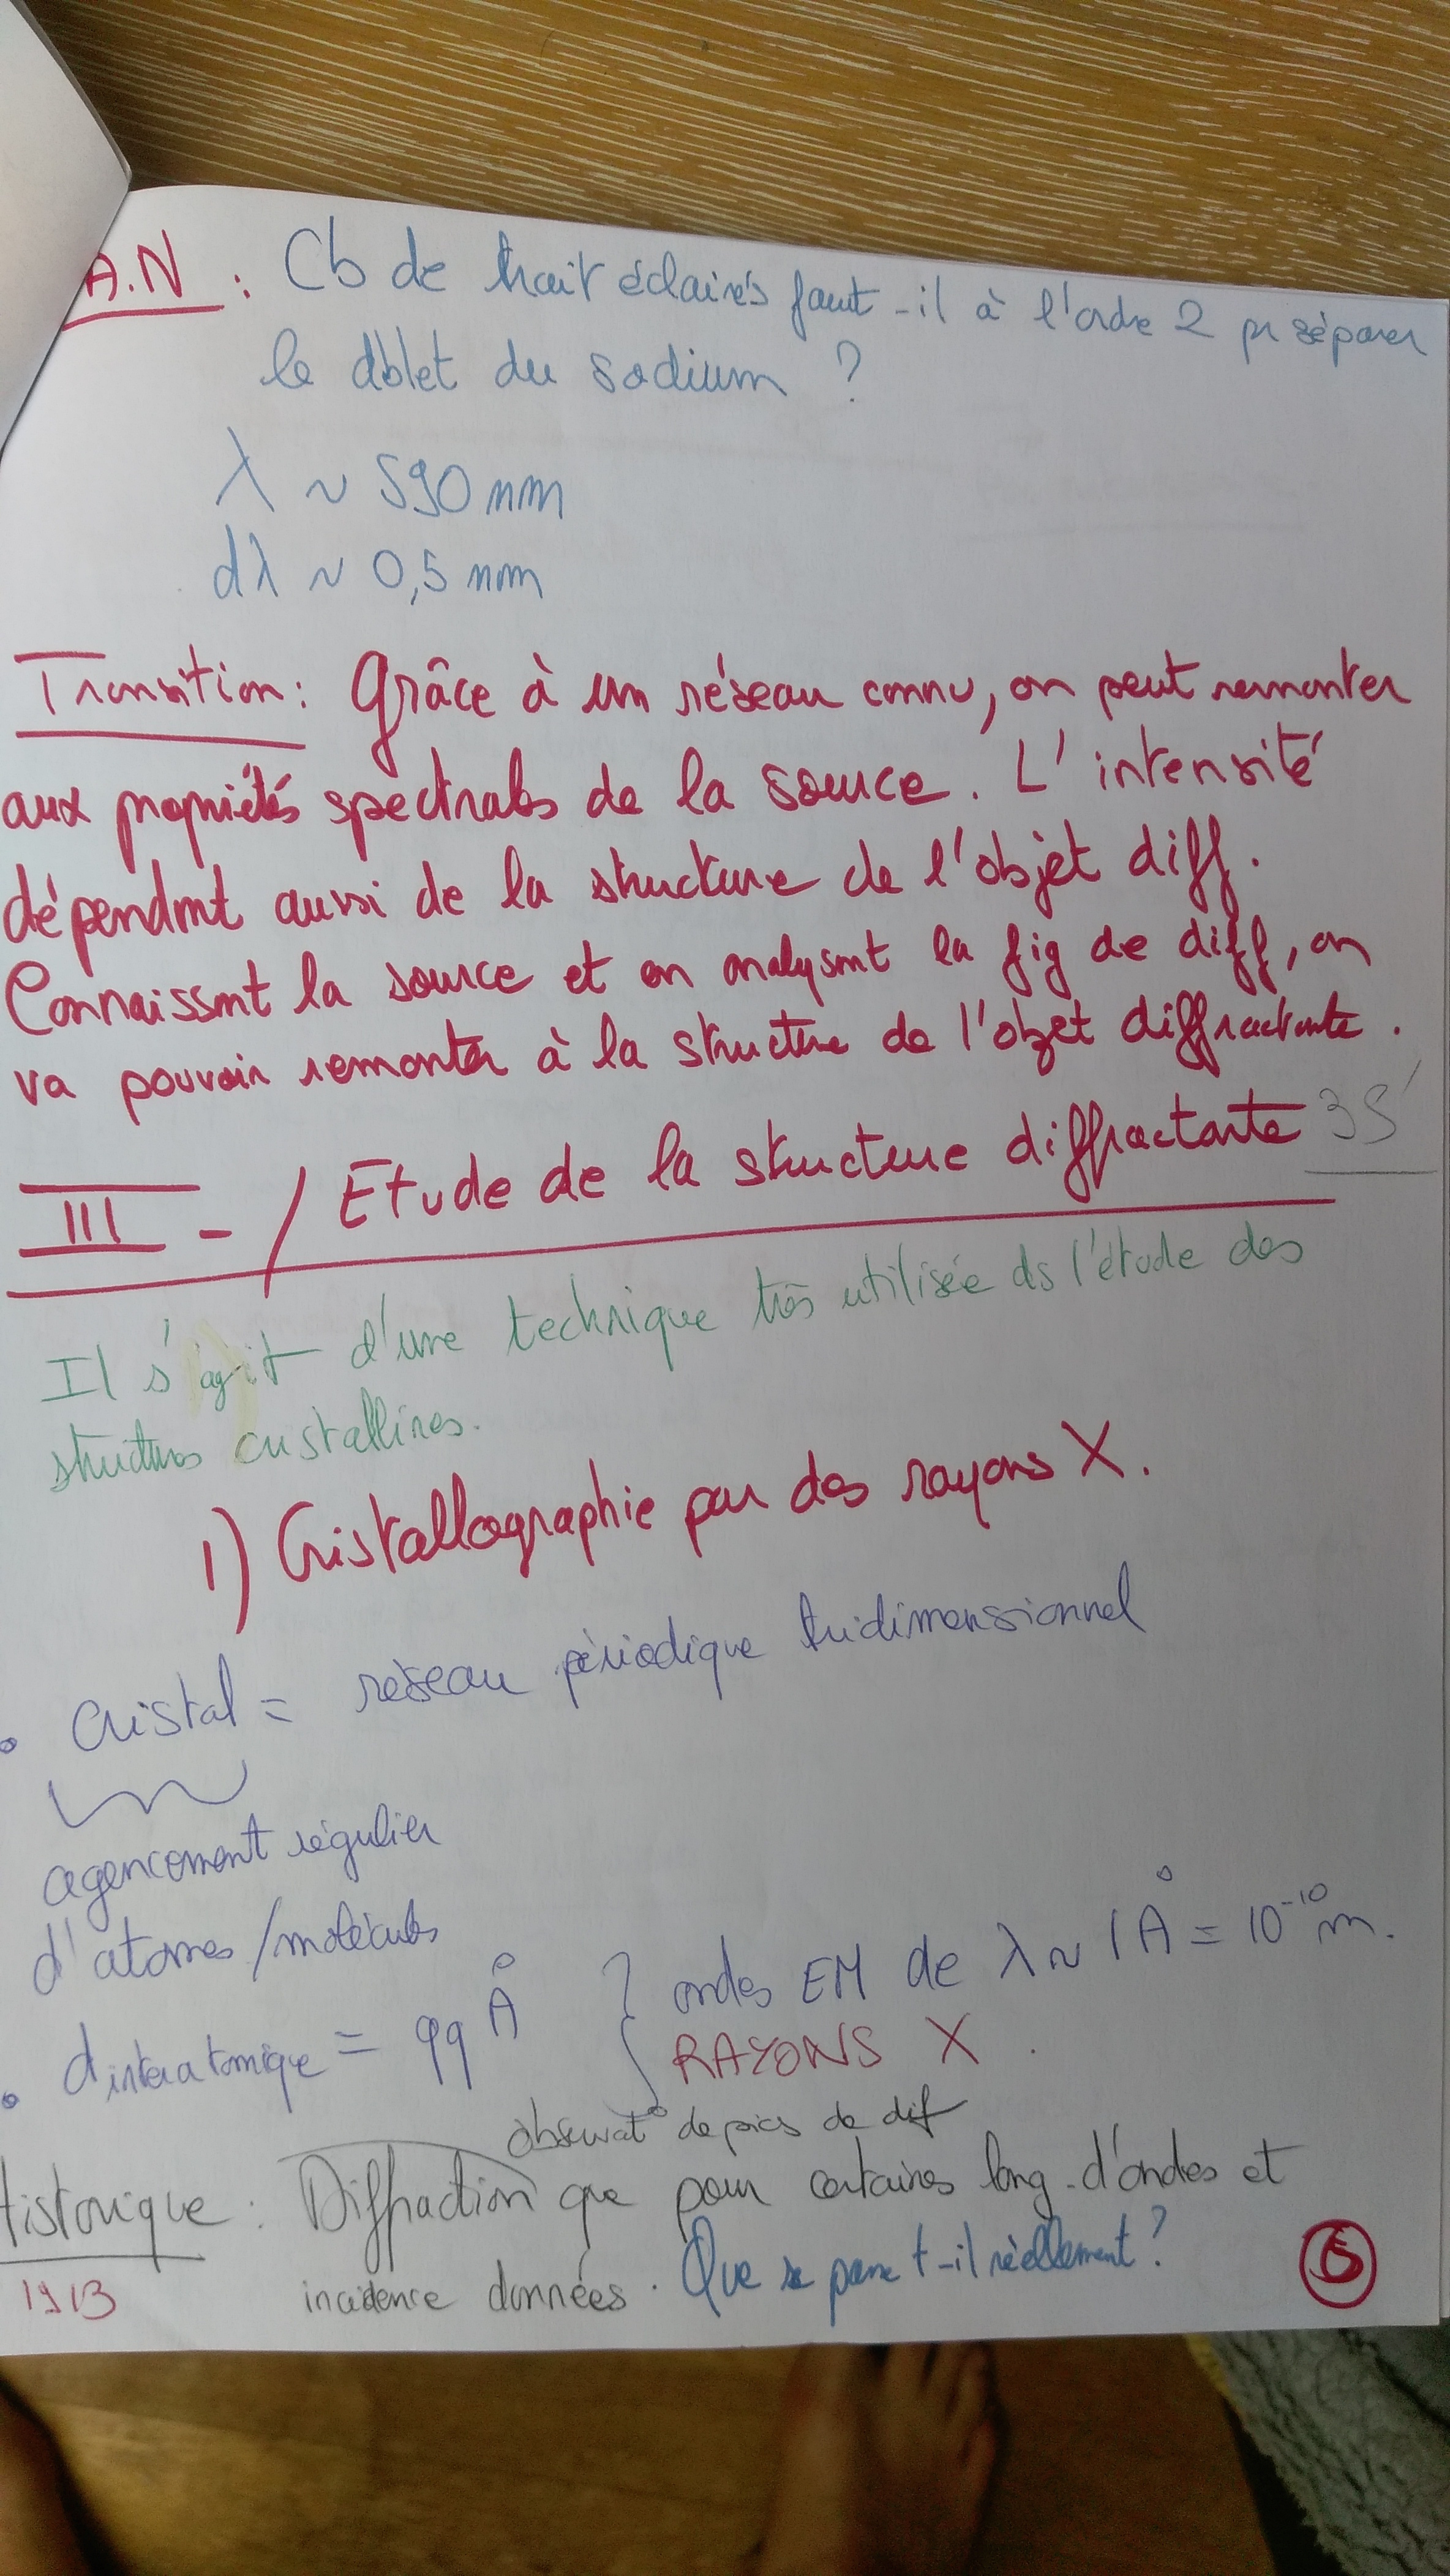 A.N : Cb de trait éclairés faut-il à l'ordre 2 pr séparer
le dblet du sodium ?
λ ~ 590 nm
dλ ~ 0,5 nm
Transition : Grâce à un réseau connu, on peut remonter
aux propriétés spectrales de la source. L'intensité
dépendant aussi de la structure de l'objet diff.
Connaissant la source et en analysant la fig de diff, on
va pouvoir remonter à la structure de l'objet diffractante.
III - / Etude de la structure diffractante 35'
Il s'agit d'une technique très utilisée ds l'étude des
structures cristallines.
1) Cristallographie par des rayons X.
• Cristal = réseau périodique tridimensionnel
agencement régulier
d'atomes/molécules
• dinteratomique = qq Å } ondes EM de λ ~ 1 Å = 10⁻¹⁰ m.
RAYONS X.
observat° de pics de dif
Historique : Diffraction que pour certaines long. d'ondes et
1913 incidence données. Que se passe t-il réellement ?
6